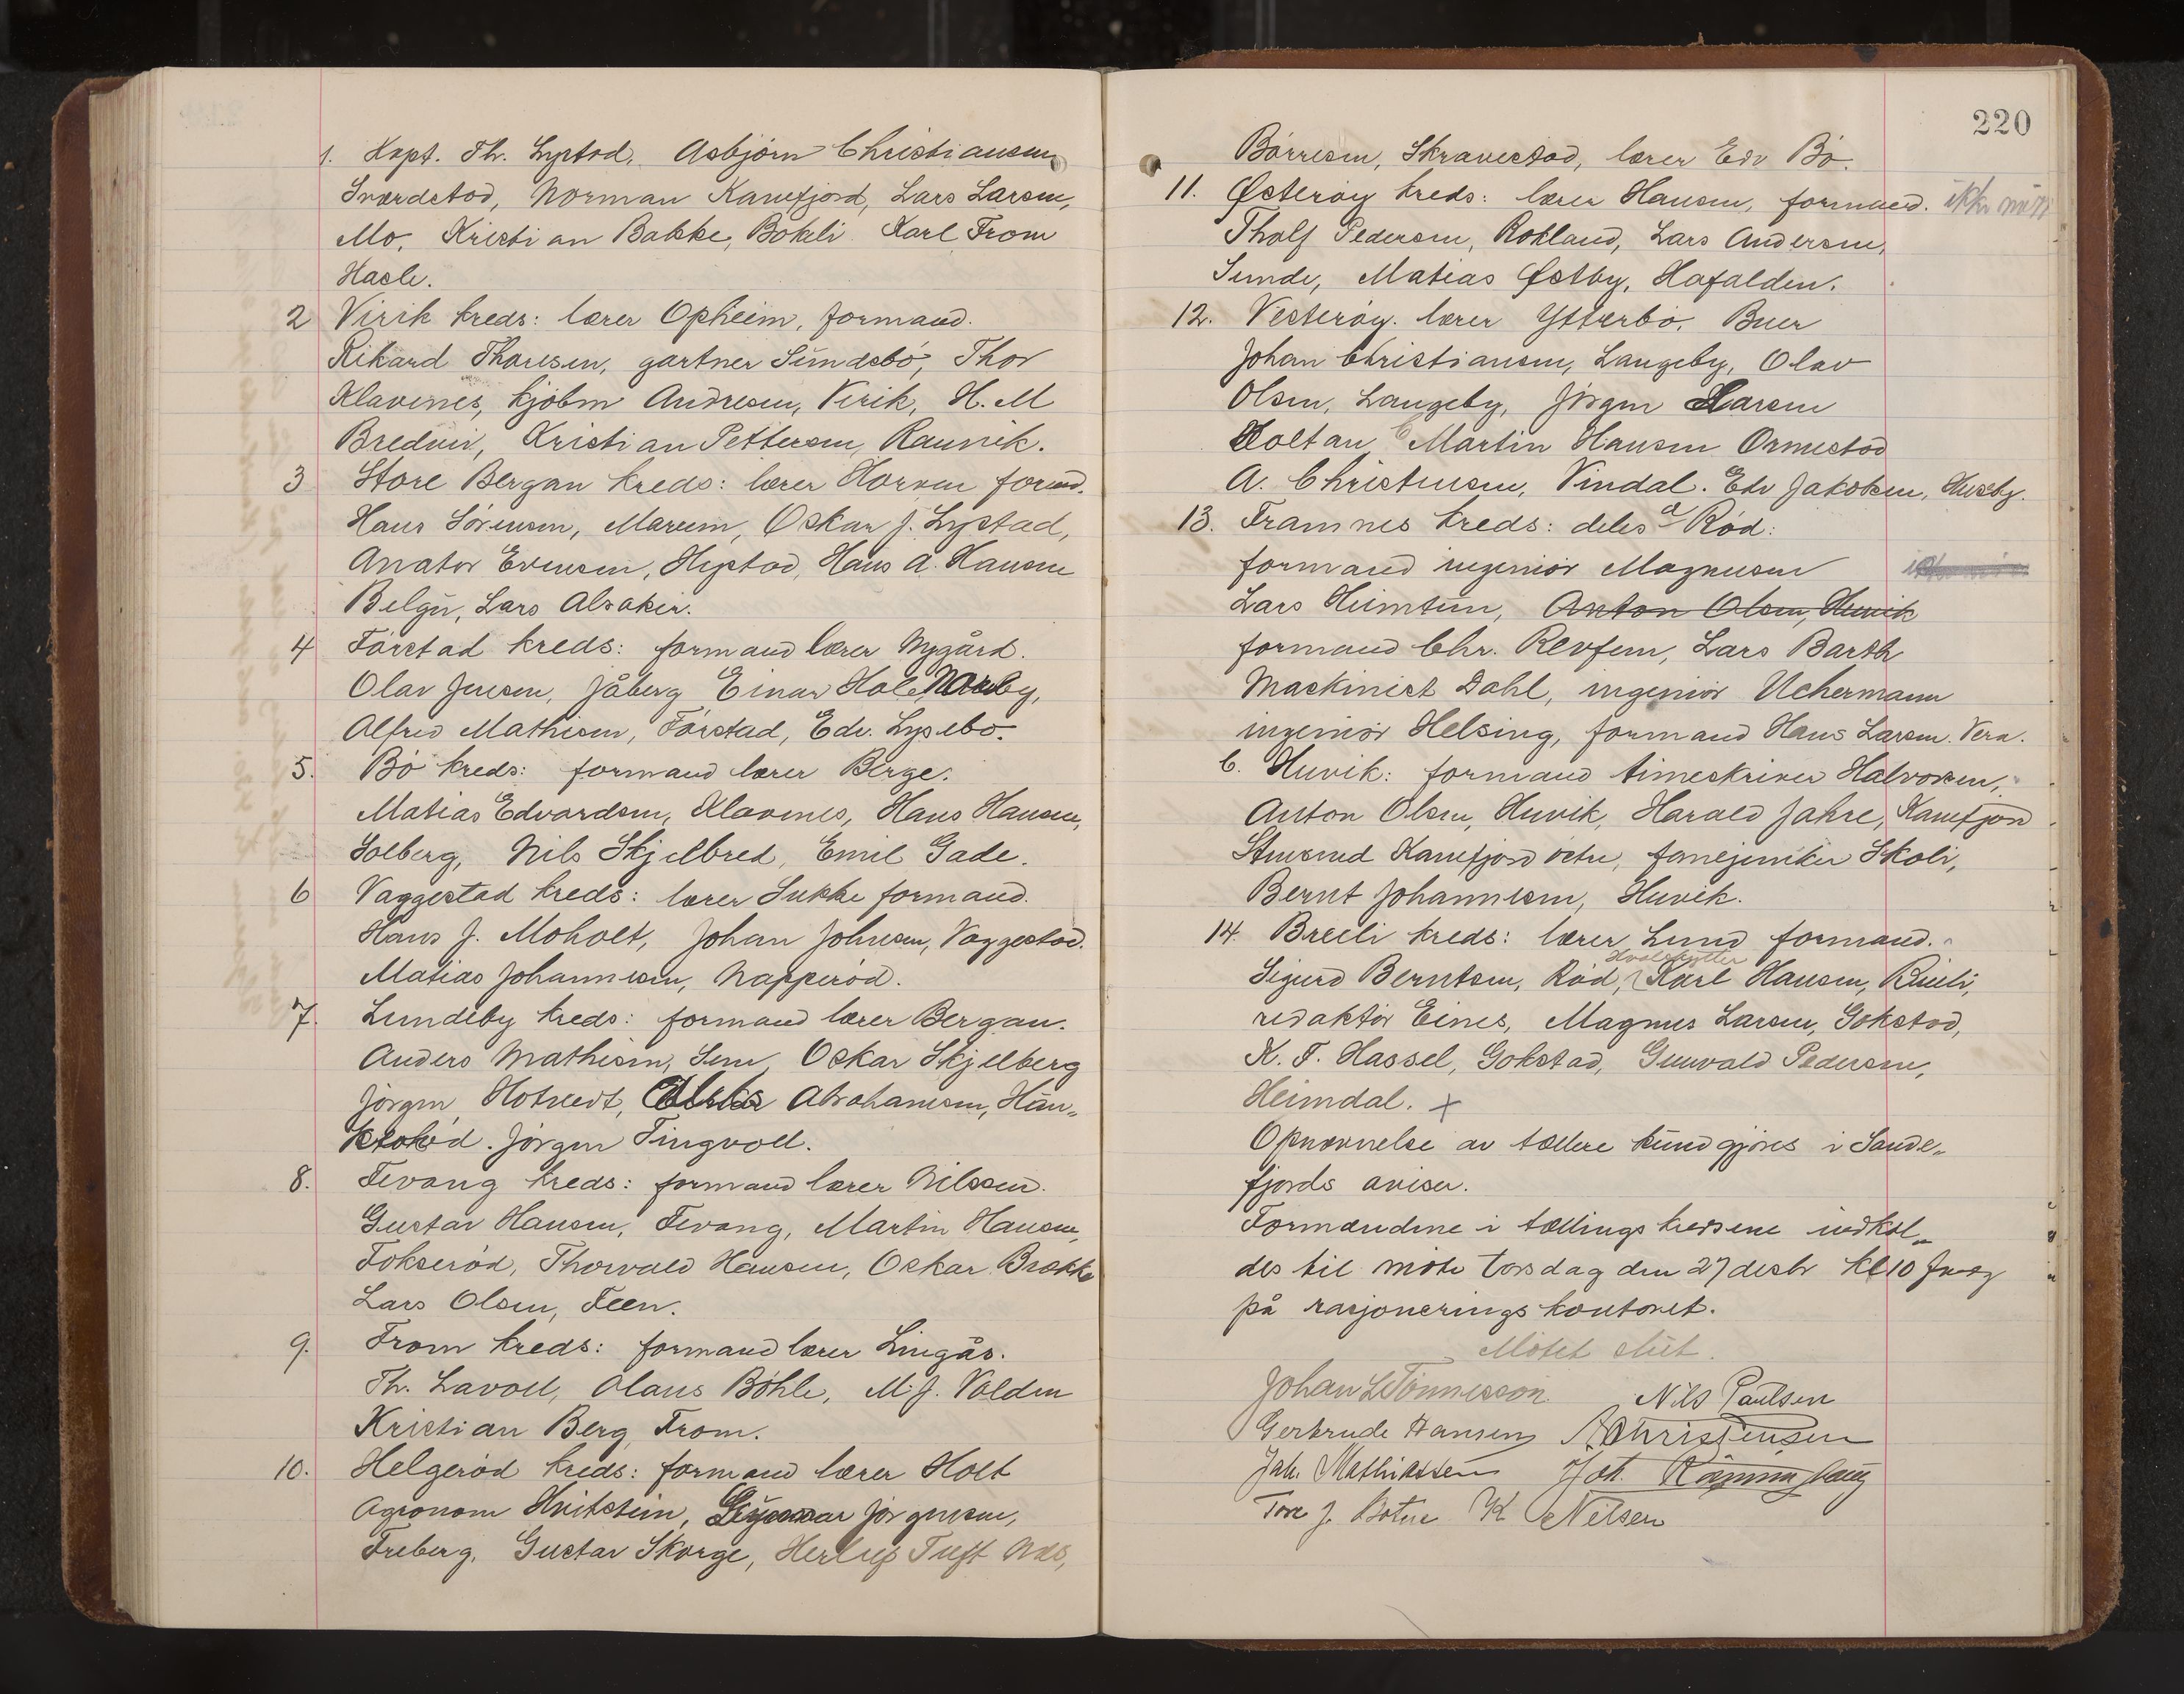 1. Kapt. Th. Lystad, Asbjörn Christiansen
Sverdstad, Norman Kamfjord, Lars Larsen,
Mo, Kristian Bakke, Bökeli Karl From
Hasle.
2 Virik kreds: lærer Opheim, formand.
Rikard Thoresen, gartner Sundsbö, Thor
Klavenes, kjöbm Andresen, Virik, H. M
Bredvei, Kristian Pettersen, Raunik.
3 Store Bergan kreds: lærer Horven formd.
Hans Sörensen, Marum, Oskar J. Lystad,
Anator Evensen, Hystad, Hans A. Hansen
Belgü, Lars Alsaker.
4 Fårstad kreds: formand lærer Nygård.
Olav Jensen, Jåberg, Einar Hole, Naruby,
Alfred Mathisen, Fårstad, Edv. Lysebö.
5. Bö kreds: formand lærer Berge.
Matias Edvardsen, Klavenes, Hans Hansen,
Solberg, Nils Skjelbred, Emil Gade.
6 Vaggestad kreds: lærer Sukke formand.
Hans J. Moholt, Johan Johnsen, Vaggestad.
Matias Johannesen, Napperöd.
7. Lundeby kreds: formand lærer Bergan.
Anders Mathisen, Sem, Oskar Skjelberg
Jörgen Hotvedt, Abrahamsen, Hau-
Jörgen Tingvoll.
8. Fevang kreds: formand lærer Nilssen.
Gustav Hansen, Fevang, Martin Hansen,
Fokseröd, Thorvald Hansen, Oskar Brække
Lars Olsen, Feen.
9. From kreds: formand lærer Lingås.
Th. Lavoll, Olaus Böhle, M. J. Volden
Kristian Berg, From.
10. Helgeröd kreds: formand lærer Holt
Agronom Hvitstein, Gunnar Jörgensen,
Freberg, Gustav Skorge, Herlüf Tuft Næs,
220
Börresen, Skravestad, lærer Edv Bö.
11. Österöy kreds: lærer Hansen, formand. ikke mött
Tholf Pedersen, Rokland, Lars Andersen,
Sunde, Matias Østby, Hafalden.
12. Vesteröy. lærer Ytterbö, Buer
Johan Christiansen, Langeby, Olav
Olsen, Langeby, Jörgen Larsen
Holtan, Martin Hansen Ormestad
A. Christensen, Vindal. Edv Jakobsen, Huseby.
13. Framnes kreds: deles a Röd:
formand ingeniör Magnusen
Lars Heimtun, Anton Olsen, Huvik
formand Chr. Revfem, Lars Barth
Maskinist Dahl, ingeniör Uchermann
ingeniör Helsing, formand Hans Larsen. Vera.
b. Huvik: formand timeskriver Halvorsen,
Anton Olsen, Huvik, Harald Jahre, Kamfjord
Kamfjord östre, Skoli,
Bernt Johannesen, Huvik.
14. Breili kreds: lærer Lund formand.
hvalskytter
Sigurd Berntsen, Röd, Karl Hansen, Breili,
redaktör Eines, Magnus Larsen, Gokstad,
K. F. Hassel, Gokstad, Gunvald Pedersen,
Heimdal. x
Opnævnelse av tællere kundgjöres i Sande-
fjords aviser.
Formændene i tællingskredsene indkal-
des til möte torsdag den 27 desbr kl 10 form
på rasjoneringskontoret.
Mötet slut.
Johan L Tönnesson Nils Paulsen
Gertrude Hansen A Christensen
Jah. Mathiassen Joh.
Tore J. Botne K Nilsen